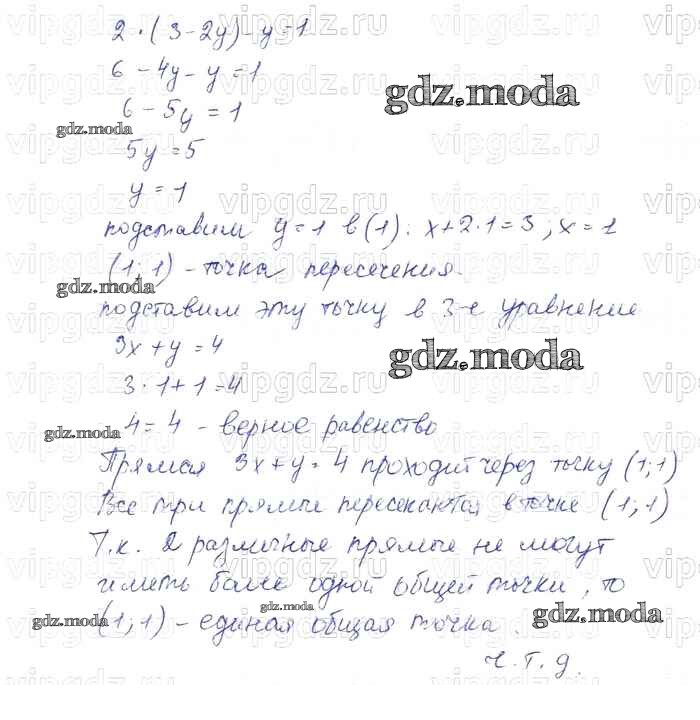 2·(3-2y)-y=1
6-4y-y=1
6-5y=1
5y=5
y=1
подставим y=1 в (1): x+2·1=3; x=1
(1;1) - точка пересечения.
подставим эту точку в 3-е уравнение
3x+y=4
3·1+1=4
4=4 - верное равенство
Прямая 3x+y=4 проходит через точку (1;1)
Все три прямые пересекаются в точке (1;1)
Т.к. 2 различные прямые не могут
иметь более одной общей точки, то
(1;1) - единая общая точка.
ч.т.д.
gdz.moda
gdz.moda
gdz.moda
gdz.moda
gdz.moda
gdz.moda
gdz.moda
gdz.moda
vipgdz.ru